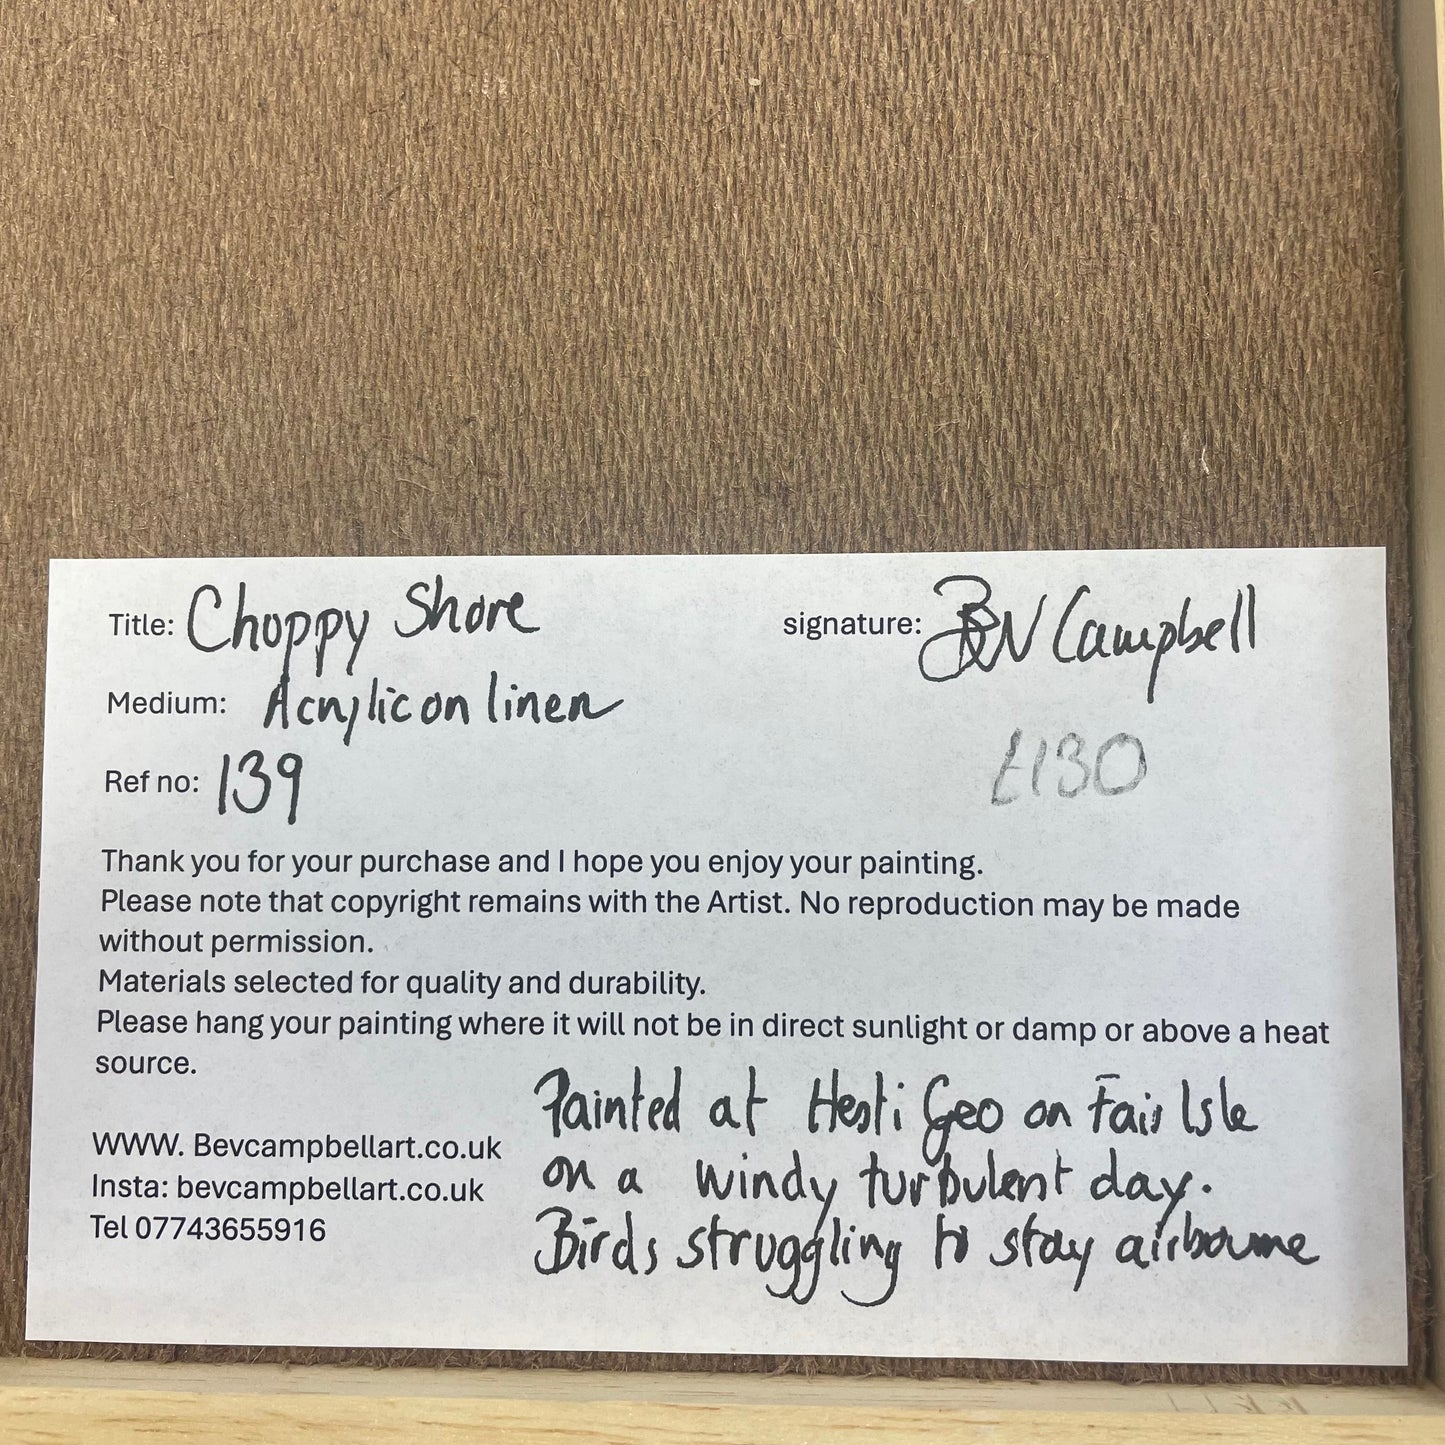 Title: Choppy Shore
signature: Bev Campbell
Medium: Acrylic on linen
£130
Ref no: 139
Thank you for your purchase and I hope you enjoy your painting.
Please note that copyright remains with the Artist. No reproduction may be made
without permission.
Materials selected for quality and durability.
Please hang your painting where it will not be in direct sunlight or damp or above a heat
source.
WWW. Bevcampbellart.co.uk
Insta: bevcampbellart.co.uk
Tel 07743655916
Painted at Hesti Geo on Fair Isle
on a windy turbulent day.
Birds struggling to stay airbourne